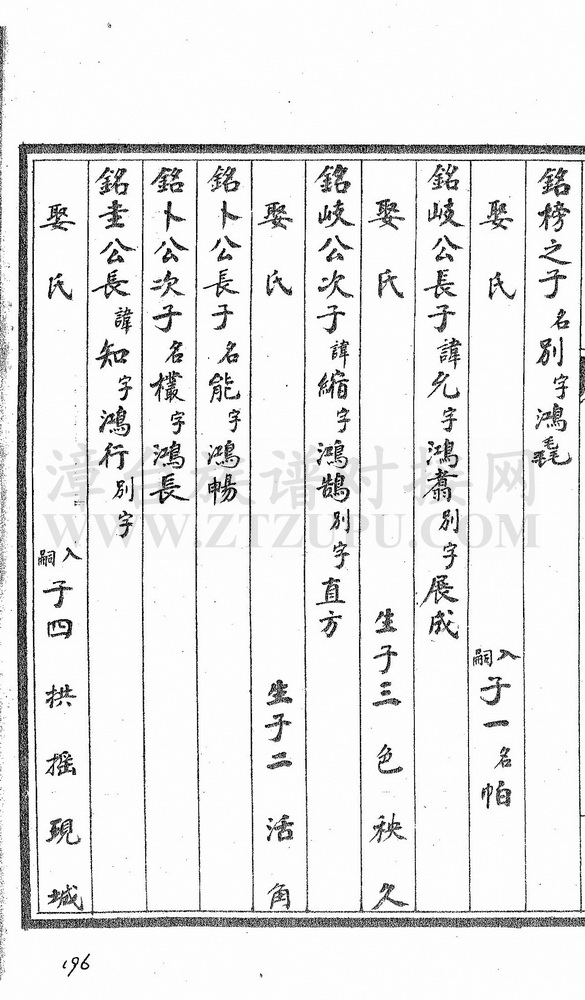 銘榜之子名別字鴻毳
娶氏 入嗣子一名帕
銘岐公長子諱允字鴻翥別字展成
娶氏 生子三 色 秧 久
銘岐公次子諱縮字鴻鵠別字直方
娶氏 生子二 活 角
銘卜公長子名能字鴻暢
銘卜公次子名欉字鴻長
銘圭公長諱知字鴻行別字
娶氏 入嗣子四 拱 搖 現 城
196
漳台族谱对接网
WWW.ZTZUPU.COM